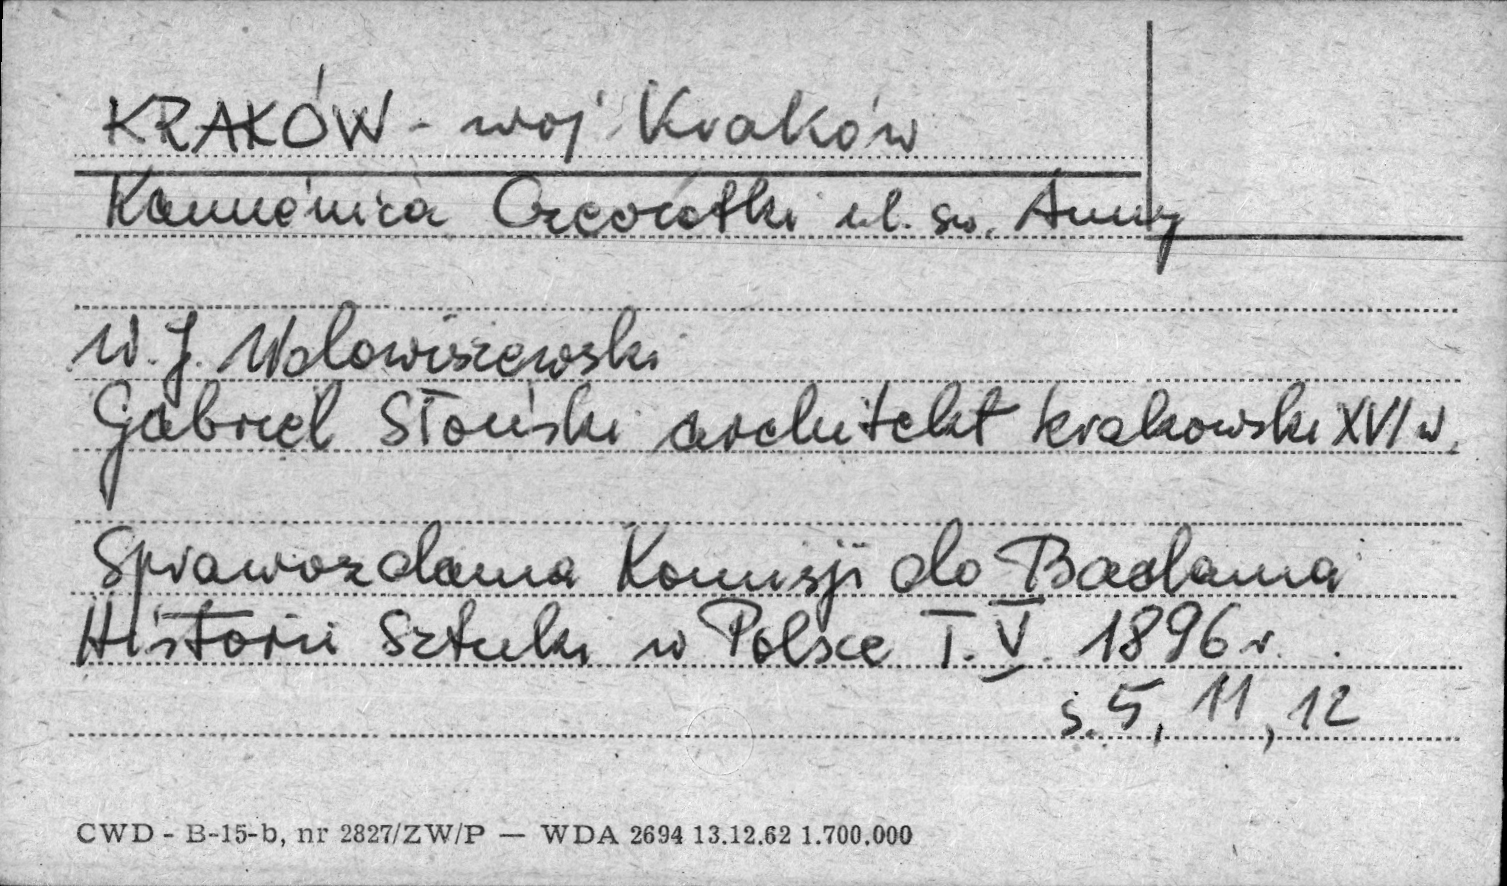 KRAKÓW - woj Kraków
Kamienica Czeczotki ul. św. Anny
W. J. Wdowiszewski
Gabriel Słoński architekt krakowski XVI w.
Sprawozdania Komisji do Badania
Historii Sztuki w Polsce T. V. 1896 r.
s. 5, 11, 12
CWD - B-15-b, nr 2827/ZW/P — WDA 2694 13.12.62 1.700.000